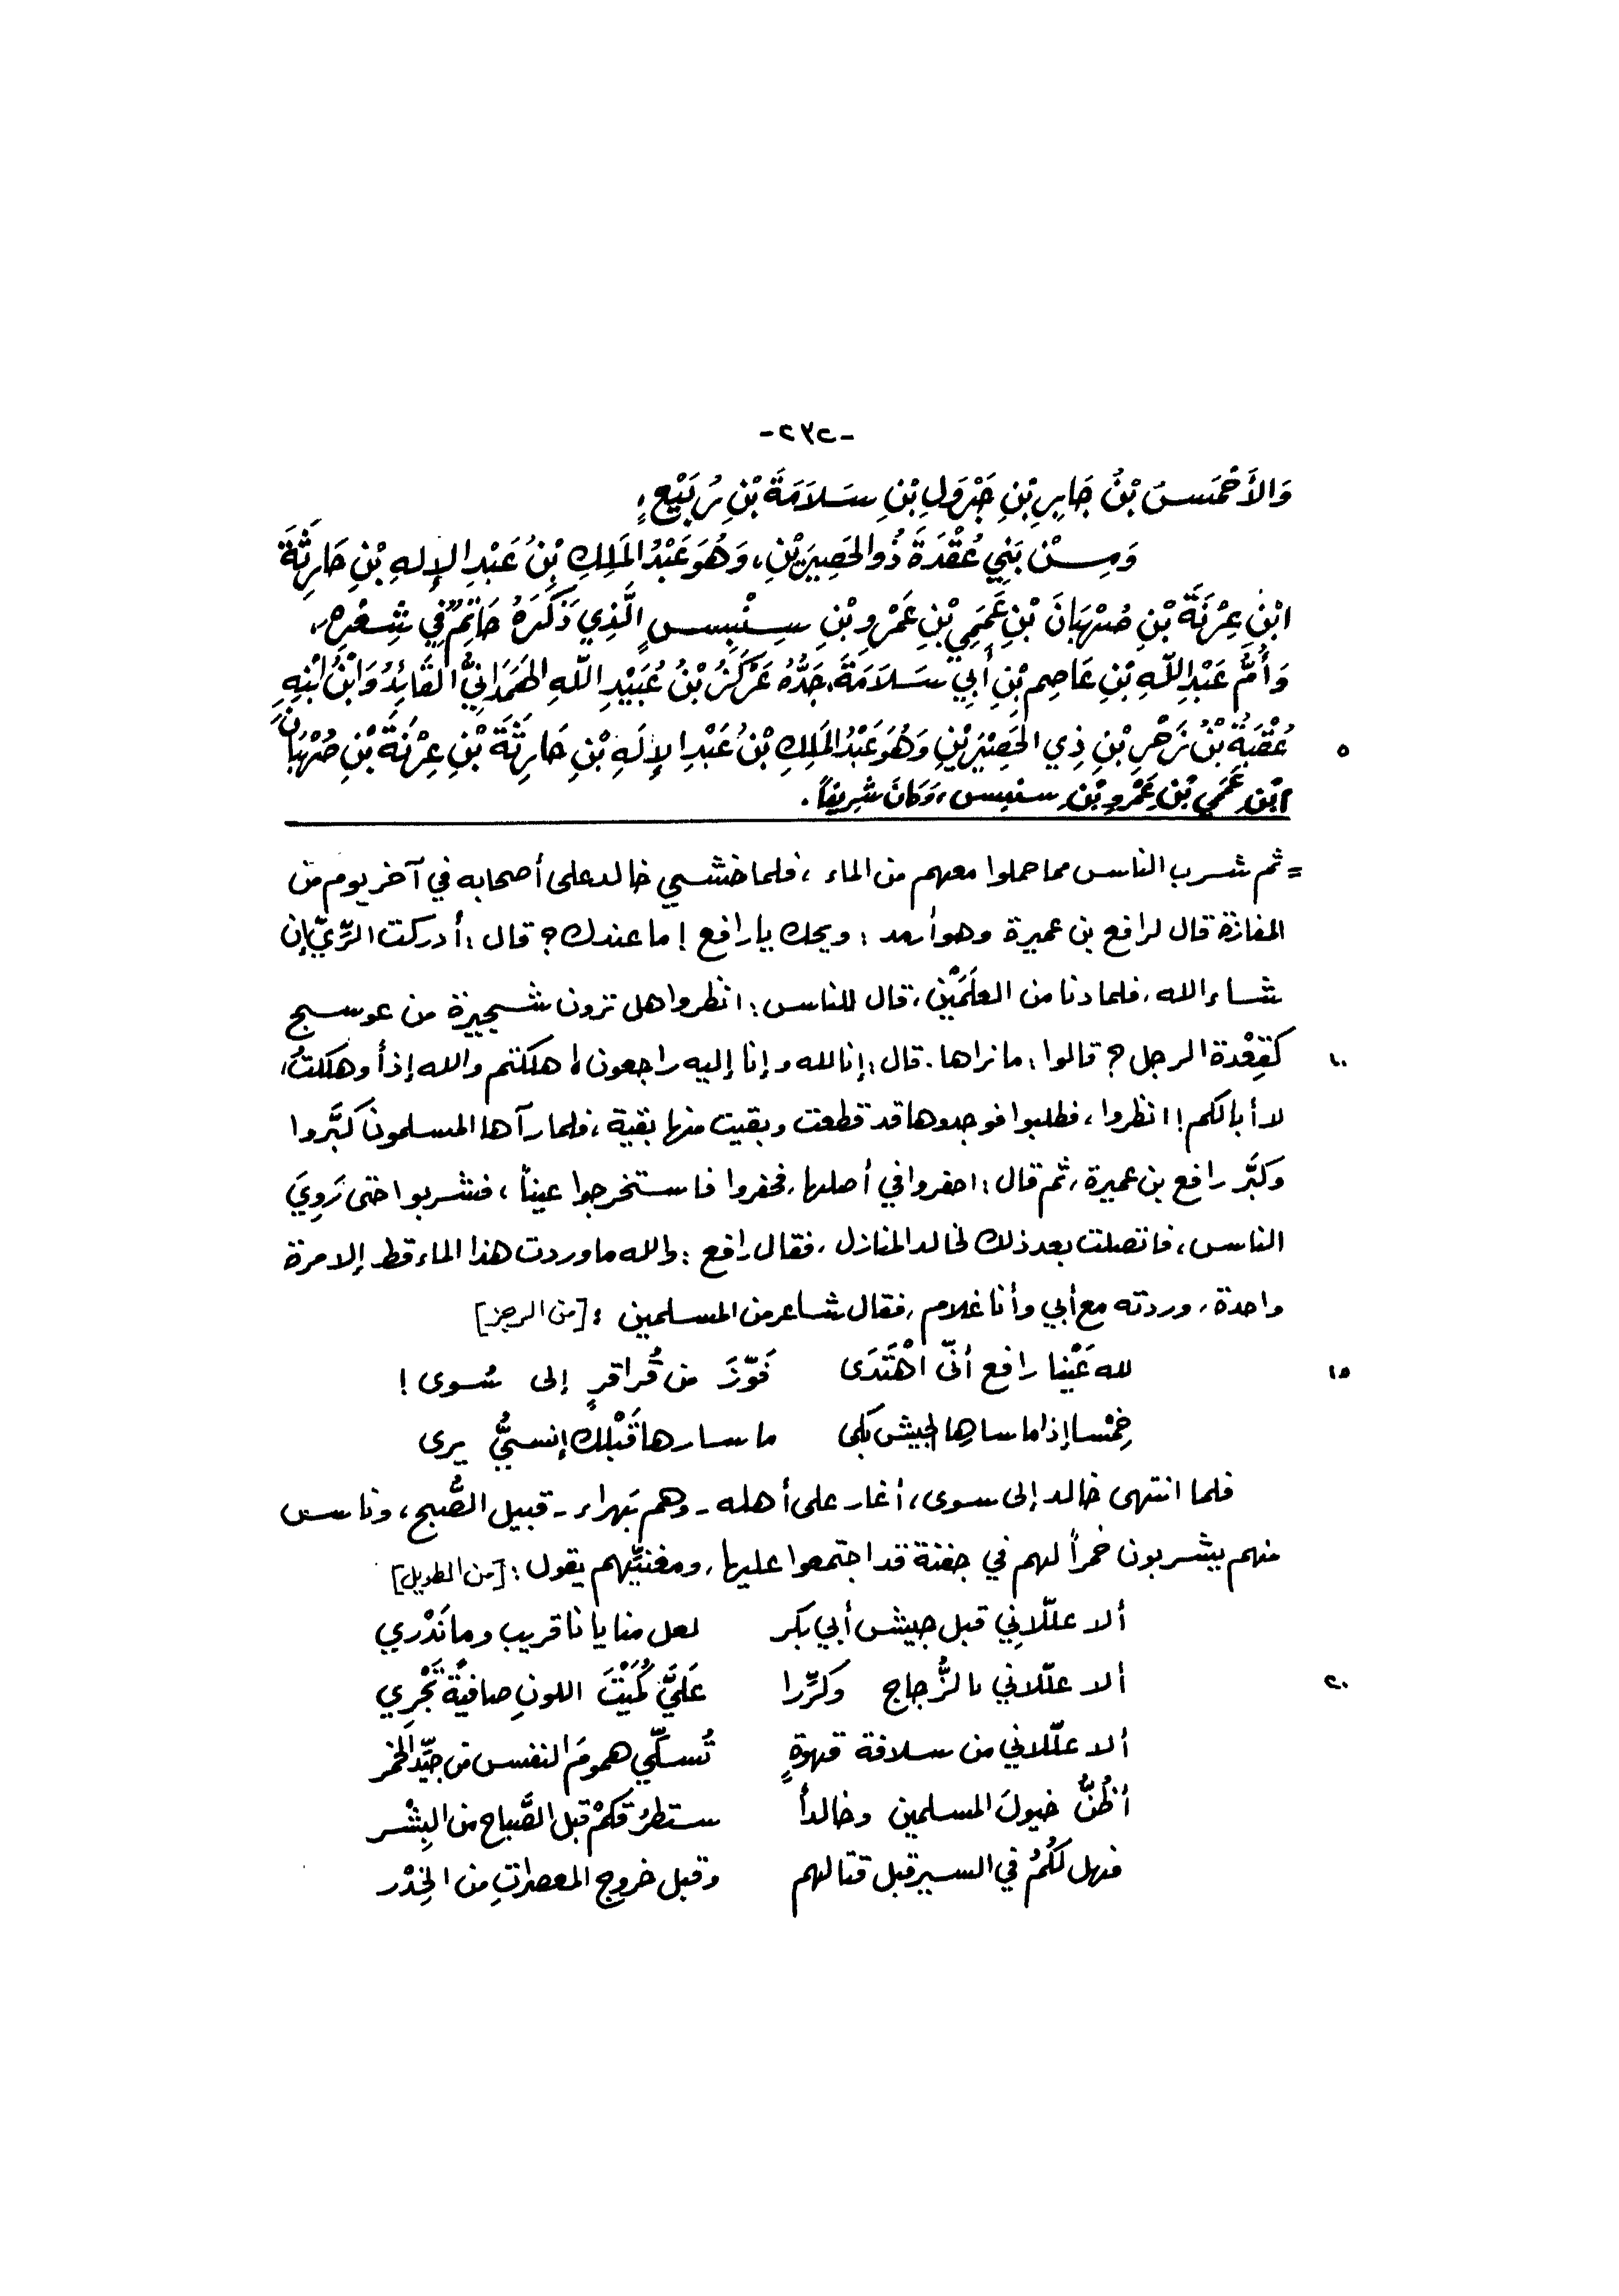 -٢٣٢-
وَالأَحْمَسُ بْنُ جَابِرِ بْنِ جَرْوَلِ بْنِ سَلاَمَةَ بْنِ رُبَيْعٍ،
وَمِنْ بَنِي عُقْدَةَ ذُو الحَصِيرَيْنِ، وَهُوَ عَبْدُ المَلِكِ بْنُ عَبْدِ الإِلهِ بْنِ حَارِثَةَ
ابْنِ عِرْنَةَ بْنِ صُهْبَانَ بْنِ عَمَمِي بْنِ عَمْرِو بْنِ سِنْبِسٍ الَّذِي ذَكَرَهُ حَاتِمٌ فِي شِعْرِهِ،
وَأُمُّ عَبْدِ اللّهِ بْنِ عَاصِمِ بْنِ أَبِي سَلاَمَةَ، جَدُّهُ عَرْكَزُ بْنُ عُبَيْدِ اللّهِ الهَمَدَانِيُّ القَائِدُ وَابْنُ ابْنِهِ
عُقْبَةُ بْنُ زَحْرِ بْنِ ذِي الحَصِيْرَيْنِ وَهُوَ عَبْدُ المَلِكِ بْنُ عَبْدِ الإِلَهِ بْنِ حَارِثَةَ بْنِ عِرْنَةَ بْنِ صُهْبَانَ ٥
ابْنِ عَمَمِي بْنِ عَمْرِو بْنِ سنبس، وَكَانَ شَرِيفاً.
= ثم شرب الناس مما حملوا معهم من الماء، فلما خشي خالد على أصحابه في آخر يوم من
المفازة قال لرافع بن عميرة وهو أرمد: ويحك يا رافع! ما عندك؟ قال: أدركت الرِّيّ إن
شاء الله، فلما دنا من العلَمَيْن، قال للناس: انظروا هل ترون شجيرة من عوسج
كقِعْدة الرجل؟ قالوا: ما نراها. قال: إنا لله وإنا إليه راجعون! هلكتم والله إذاً وهلكتُ، ١٠
لا أبا لكم! انظروا، فطلبوا فوجدوها قد قطعت وبقيت منها بقية، فلما رآها المسلمون كبَّروا
وكبَّر رافع بن عميرة، ثم قال: احفروا في أصلها، فحفروا فاستخرجوا عيناً، فشربوا حتى رَوِيَ
الناس، فاتصلت بعد ذلك لخالد المنازل، فقال رافع: والله ما وردت هذا الماء قط إلا مرة
واحدة، وردته مع أبي وأنا غلام، فقال شاعر من المسلمين: [من الرجز]
لله عَيْنا رافع أنّى اهْتَدَى فَوَّزَ من قُراقرٍ إلى سُوى! ١٥
خِمْسا إذا ما سارها الجيش بكى ما سارها قَبْلك إنسيٌّ يرى
فلما انتهى خالد إلى سوى، أغار على أهله - وهم بَهراء - قبيل الصُّبح، وناس
منهم يشربون خمراً لهم في جفنة قد اجتمعوا عليها، ومغنيّهم يقول: [من الطويل]
ألا علّلانِي قبل جيش أبي بكر لعل منايانا قريب وما نَدْري
ألا علّلاني بالزُّجاج وكرِّرا عَلَيَّ كُمَيْتَ اللونِ صافيةً تَجْرِي ٢٠
ألا علّلاني من سلافة قهوةٍ تُسلّي همومَ النفس من جيّد الخمر
أظُنُّ خيولَ المسلمين وخالداً ستطرُقكمْ قبل الصَّباح من البِشْر
فهل لكُمُ في السير قبل قتالهم وقبل خروج المعصراتِ من الخِدْر